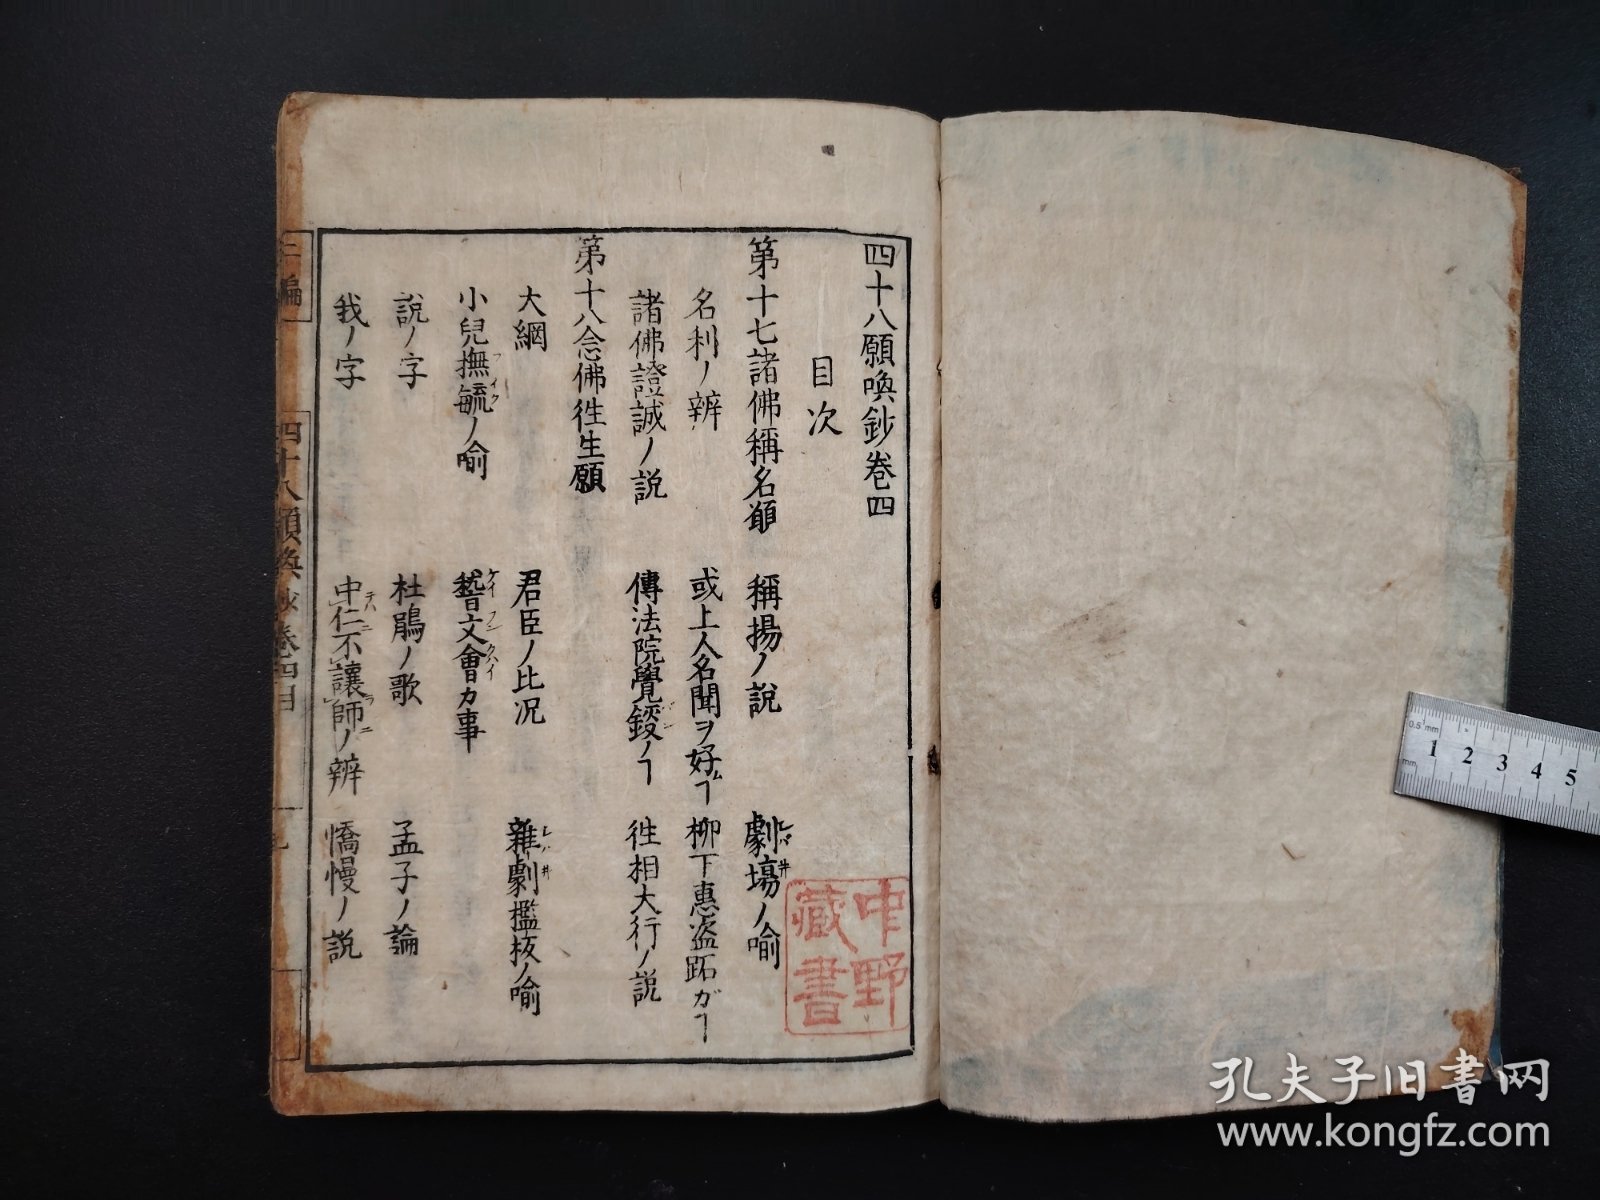 四十八願喚鈔巻四
目次
第十七諸佛稱名願 稱揚ノ説 劇場ノ喻
名利ノ辨 或上人名聞ヲ好ムヿ 柳下惠盗跖ガヿ
諸佛證誠ノ説 傳法院覺鑁ノヿ 徃相大行ノ説
第十八念佛徃生願
大綱 君臣ノ比況 雜劇濫抜ノ喻
小兒撫毓ノ喻 嵆文會カ事
説ノ字 杜鵑ノ歌 孟子ノ論
我ノ字 中仁不讓師ノ辨 憍慢ノ説
中野
藏書
三編
四十八願喚鈔巻四目
0.5mm
mm
1 2 3 4 5
孔夫子旧书网
www.kongfz.com